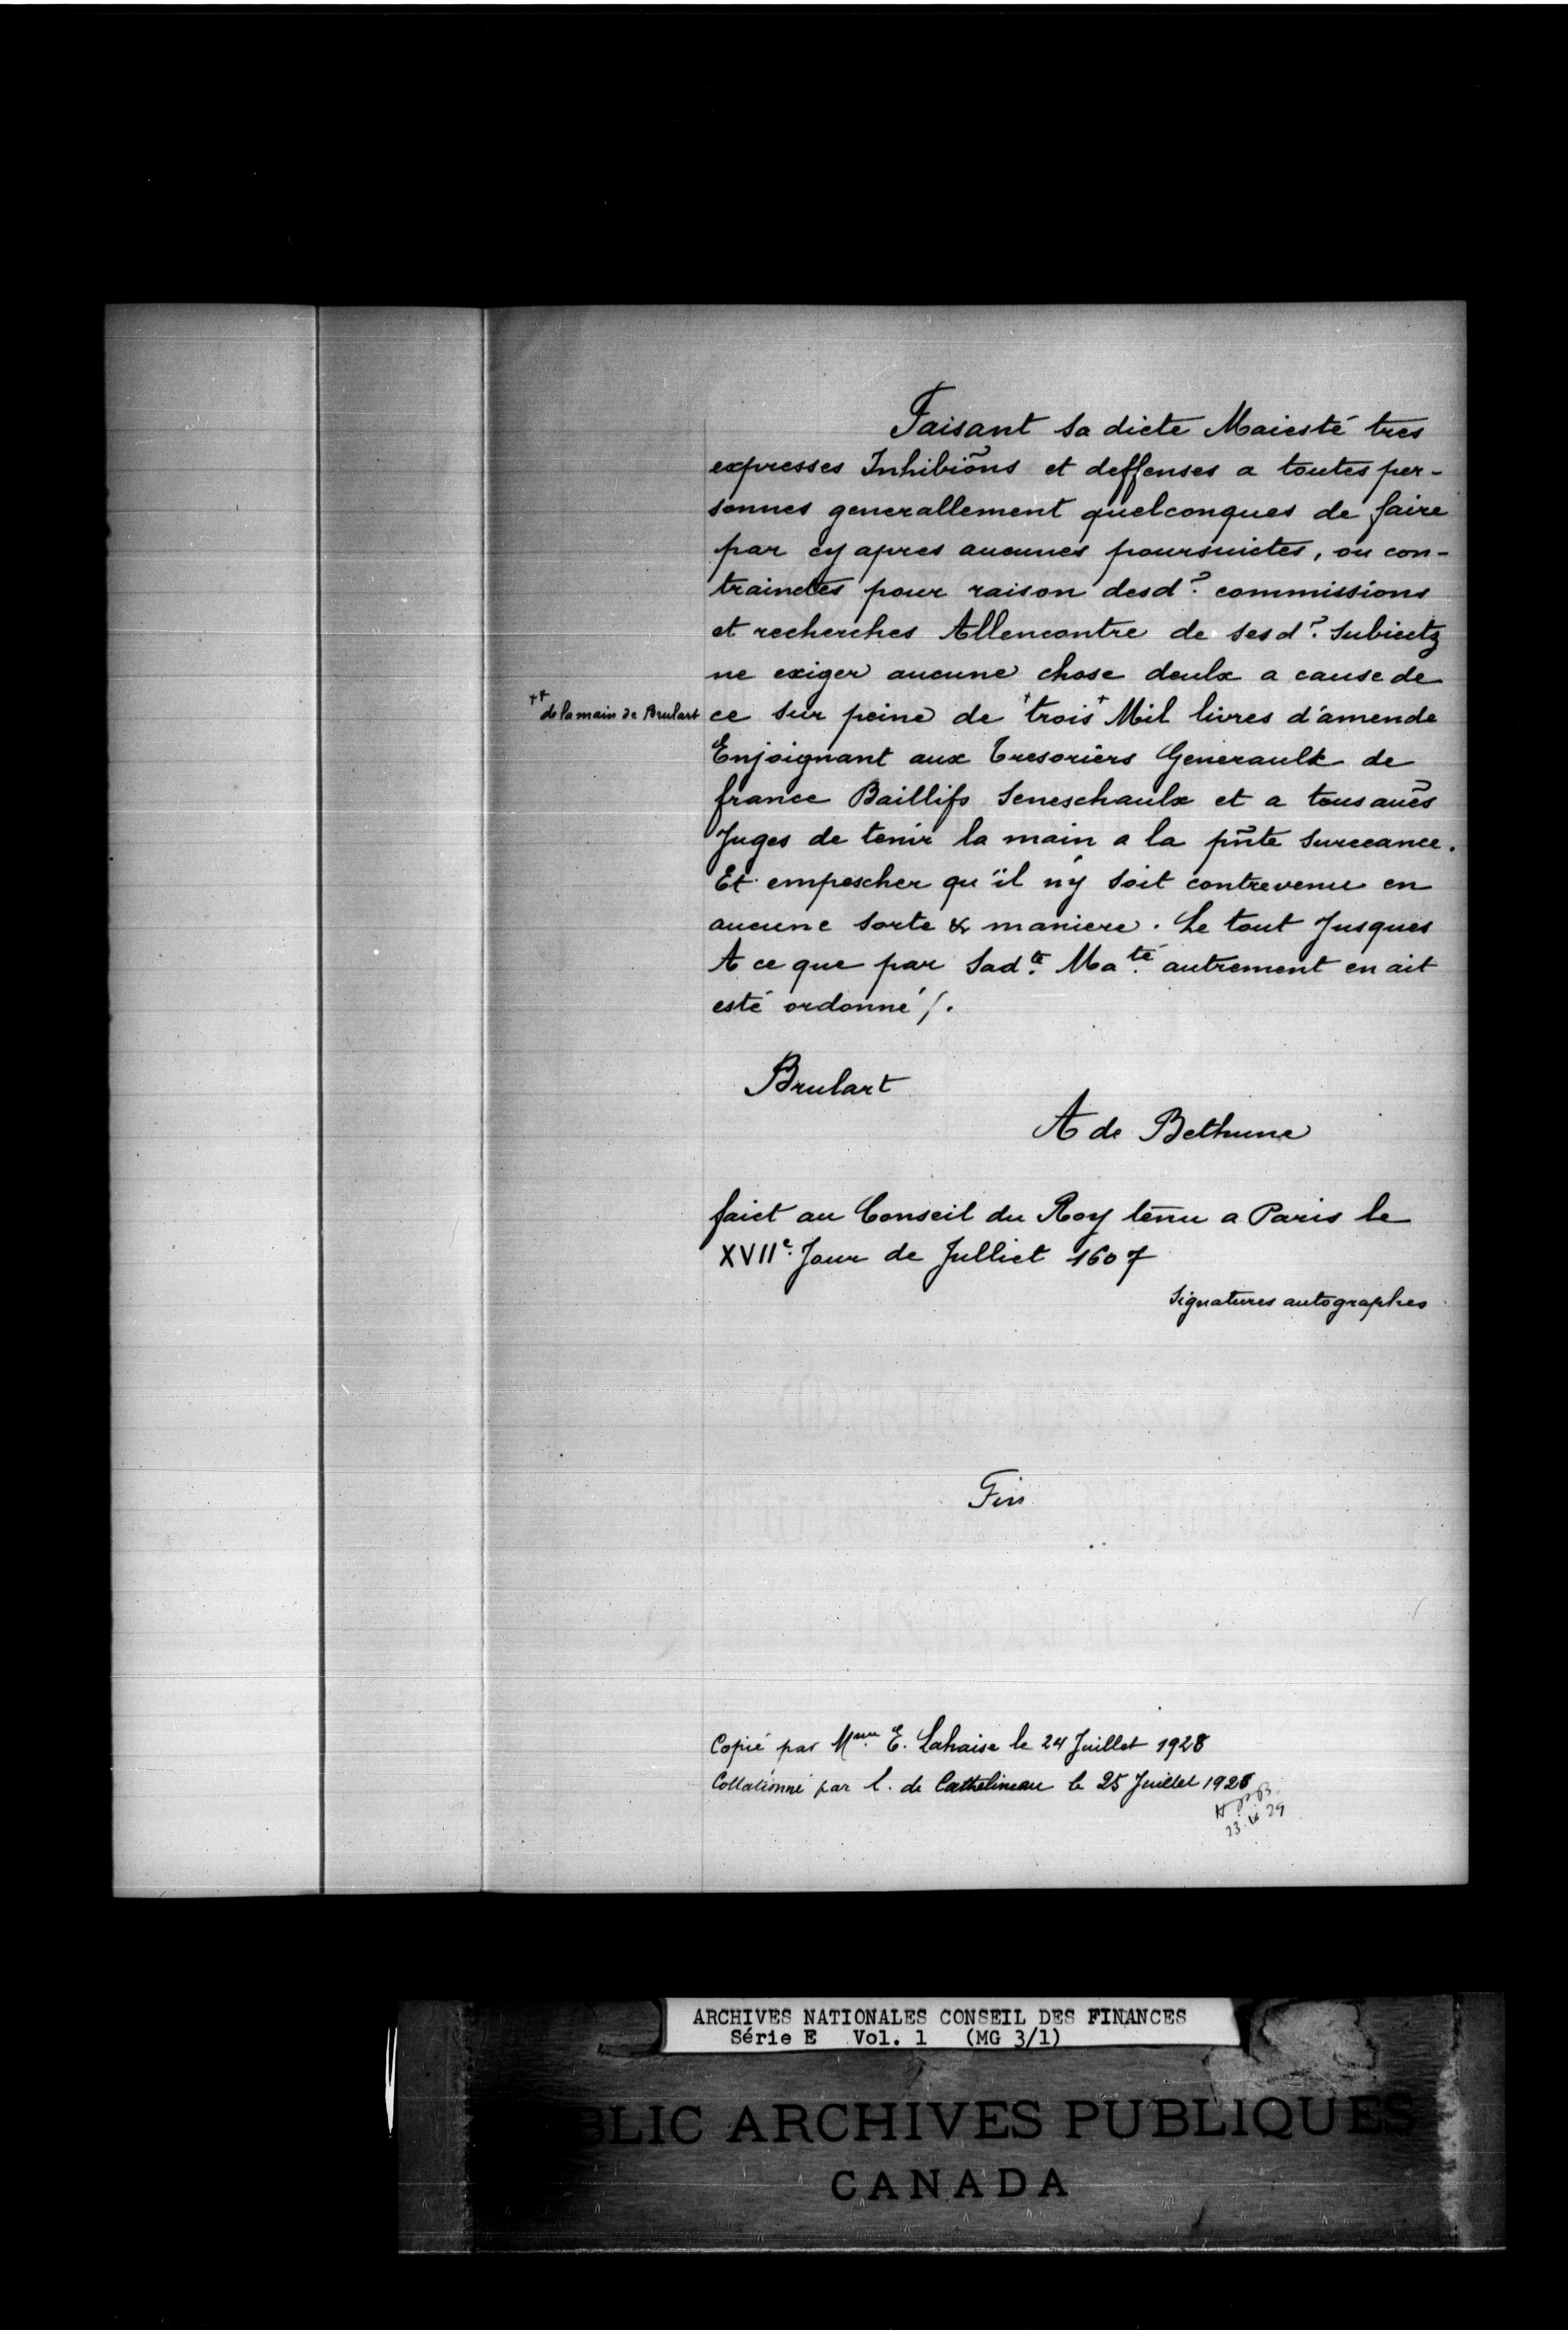 Faisant sa dicte Maiesté tres
expresses Inhibiõns et deffenses a toutes per-
sonnes generallement quelconques de faire
par cy apres aucunes poursuictes, ou con-
trainctes pour raison desd. commissions
et recherches Allencontre de sesd. subiectz
ne exiger aucune chose deulx a cause de
++ de la main de Brulart
ce sur peine de +trois+ Mil livres d'amende
Enjoignant aux Tresoriers Generaulx de
france Baillifs Seneschaulx et a tous aũes
Juges de tenir la main a la pñte surceance.
Et empescher qu'il n'y soit contrevenu en
aucune sorte & maniere. Le tout Jusques
A ce que par Sad.te Ma.té autrement en ait
esté ordonné /.
Brulart
A de Bethune
faict au Conseil du Roy tenu a Paris le
XVIIe. Jour de Julliet 1607
Signatures autographes
Fin
Copié par Mme E. Lahaise le 24 Juillet 1928
Collationné par l. de Cathelineau le 25 Juillet 1928
23. ix 29
ARCHIVES NATIONALES CONSEIL DES FINANCES
Série E Vol. 1 (MG 3/1)
BLIC ARCHIVES PUBLIQUES
CANADA